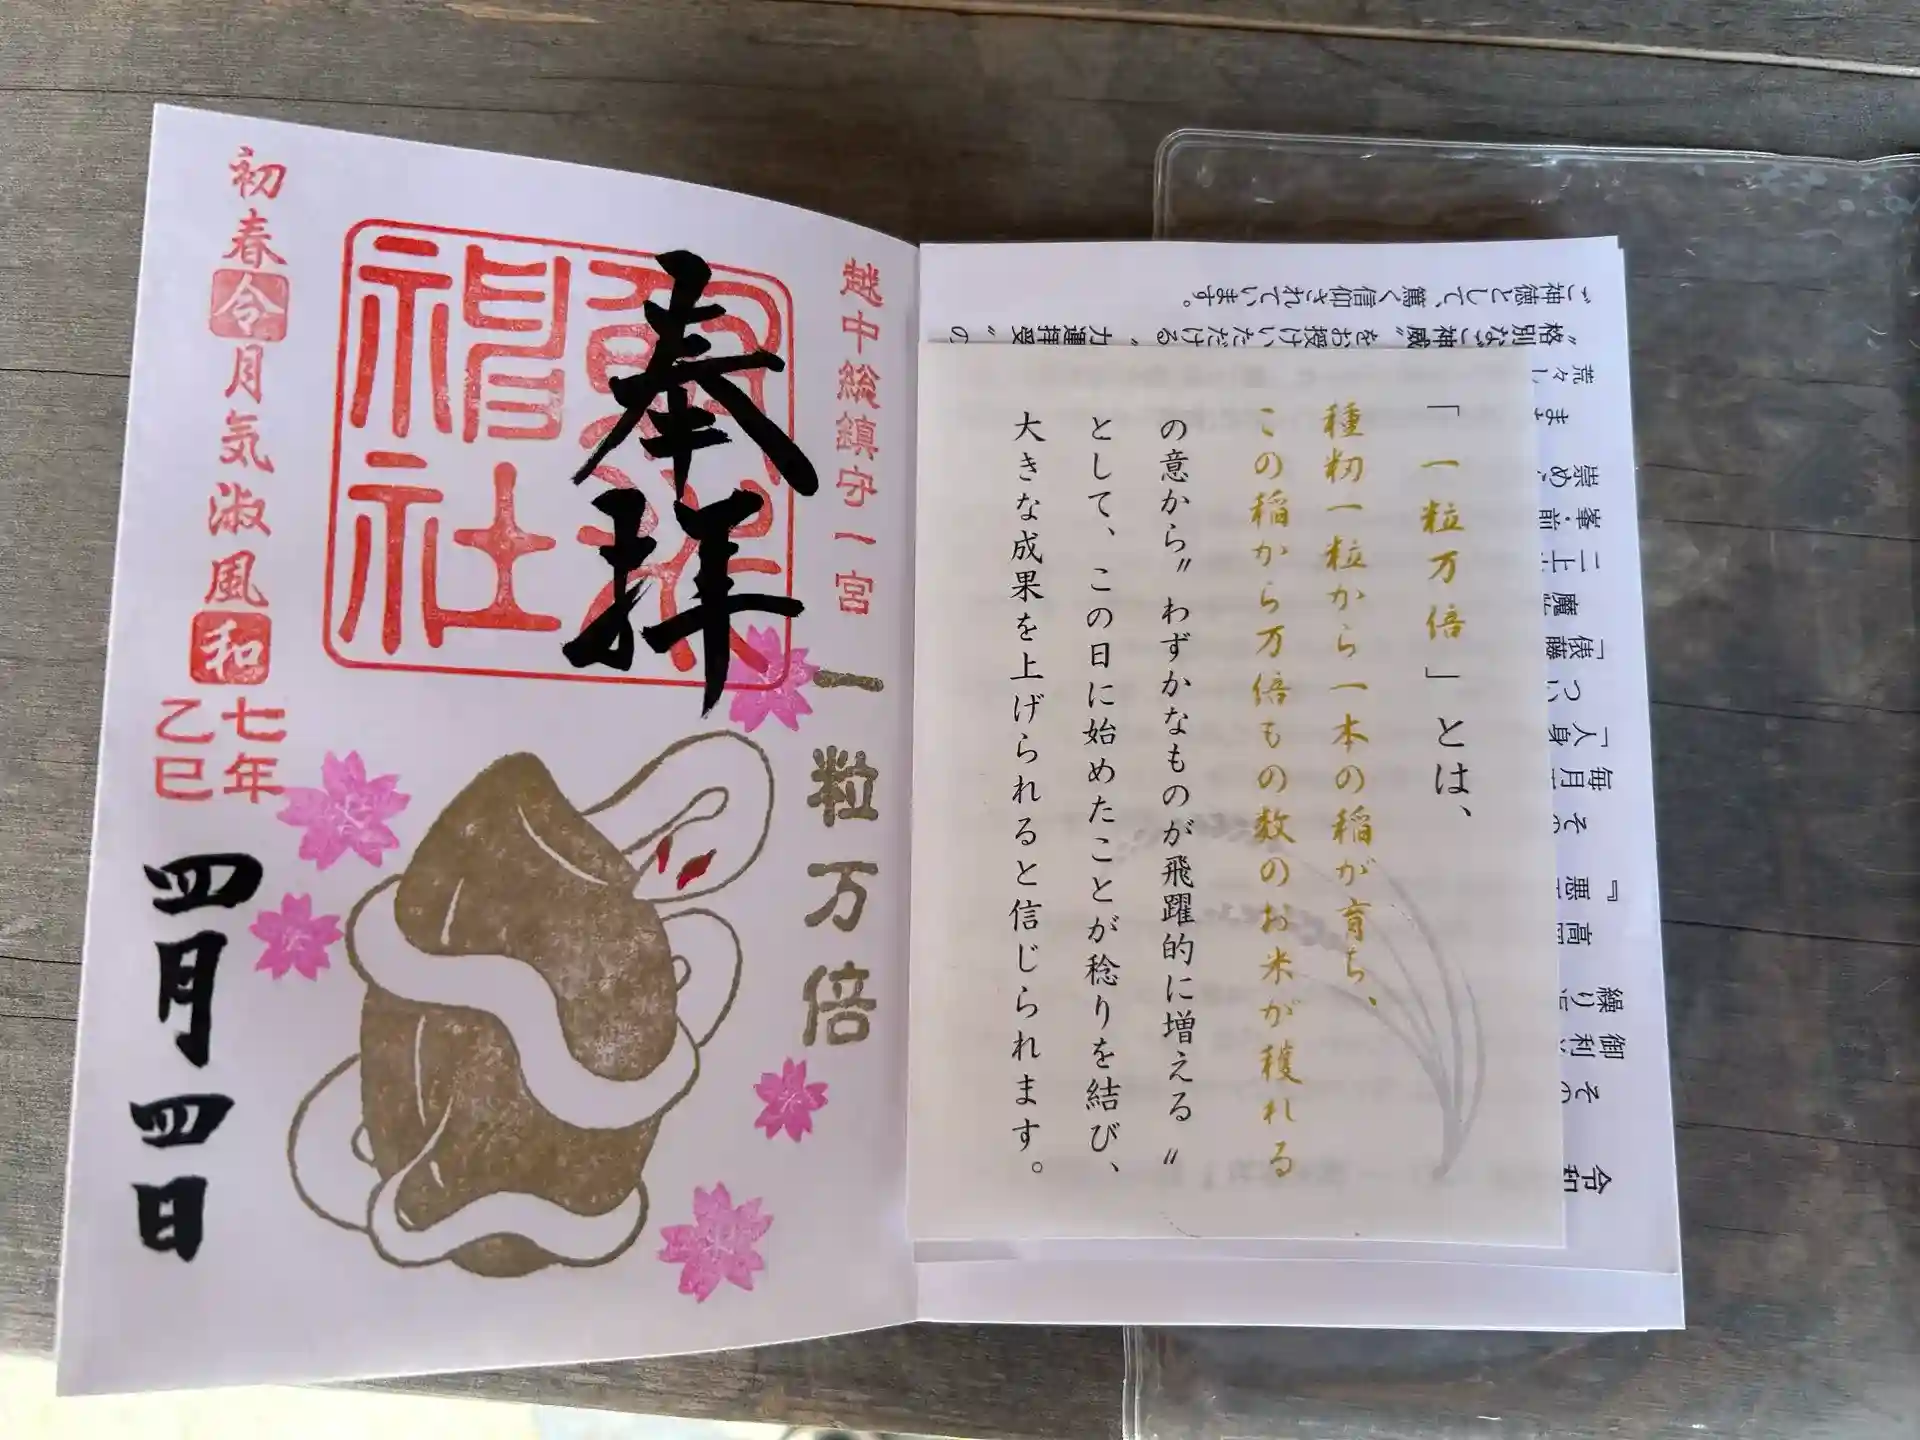 越中総鎮守一宮
奉拝
射水神社
一粒万倍
初春令月気淑風和
七年
乙巳
四月四日
「一粒万倍」とは、
種籾一粒から一本の稲が育ち、
この稲から万倍もの数のお米が穫れる
の意から〝わずかなものが飛躍的に増える〟
として、この日に始めたことが稔りを結び、
大きな成果を上げられると信じられます。
ご神徳として、篤く信仰されています。
〝格別なご神威〟をお授けいただける〝力運拝受〟の
荒々し
ま
崇め
峯・前
二上
魔
「俵藤
つい
「人身
毎月
その
『悪
高岡
繰り
御利
その
令和